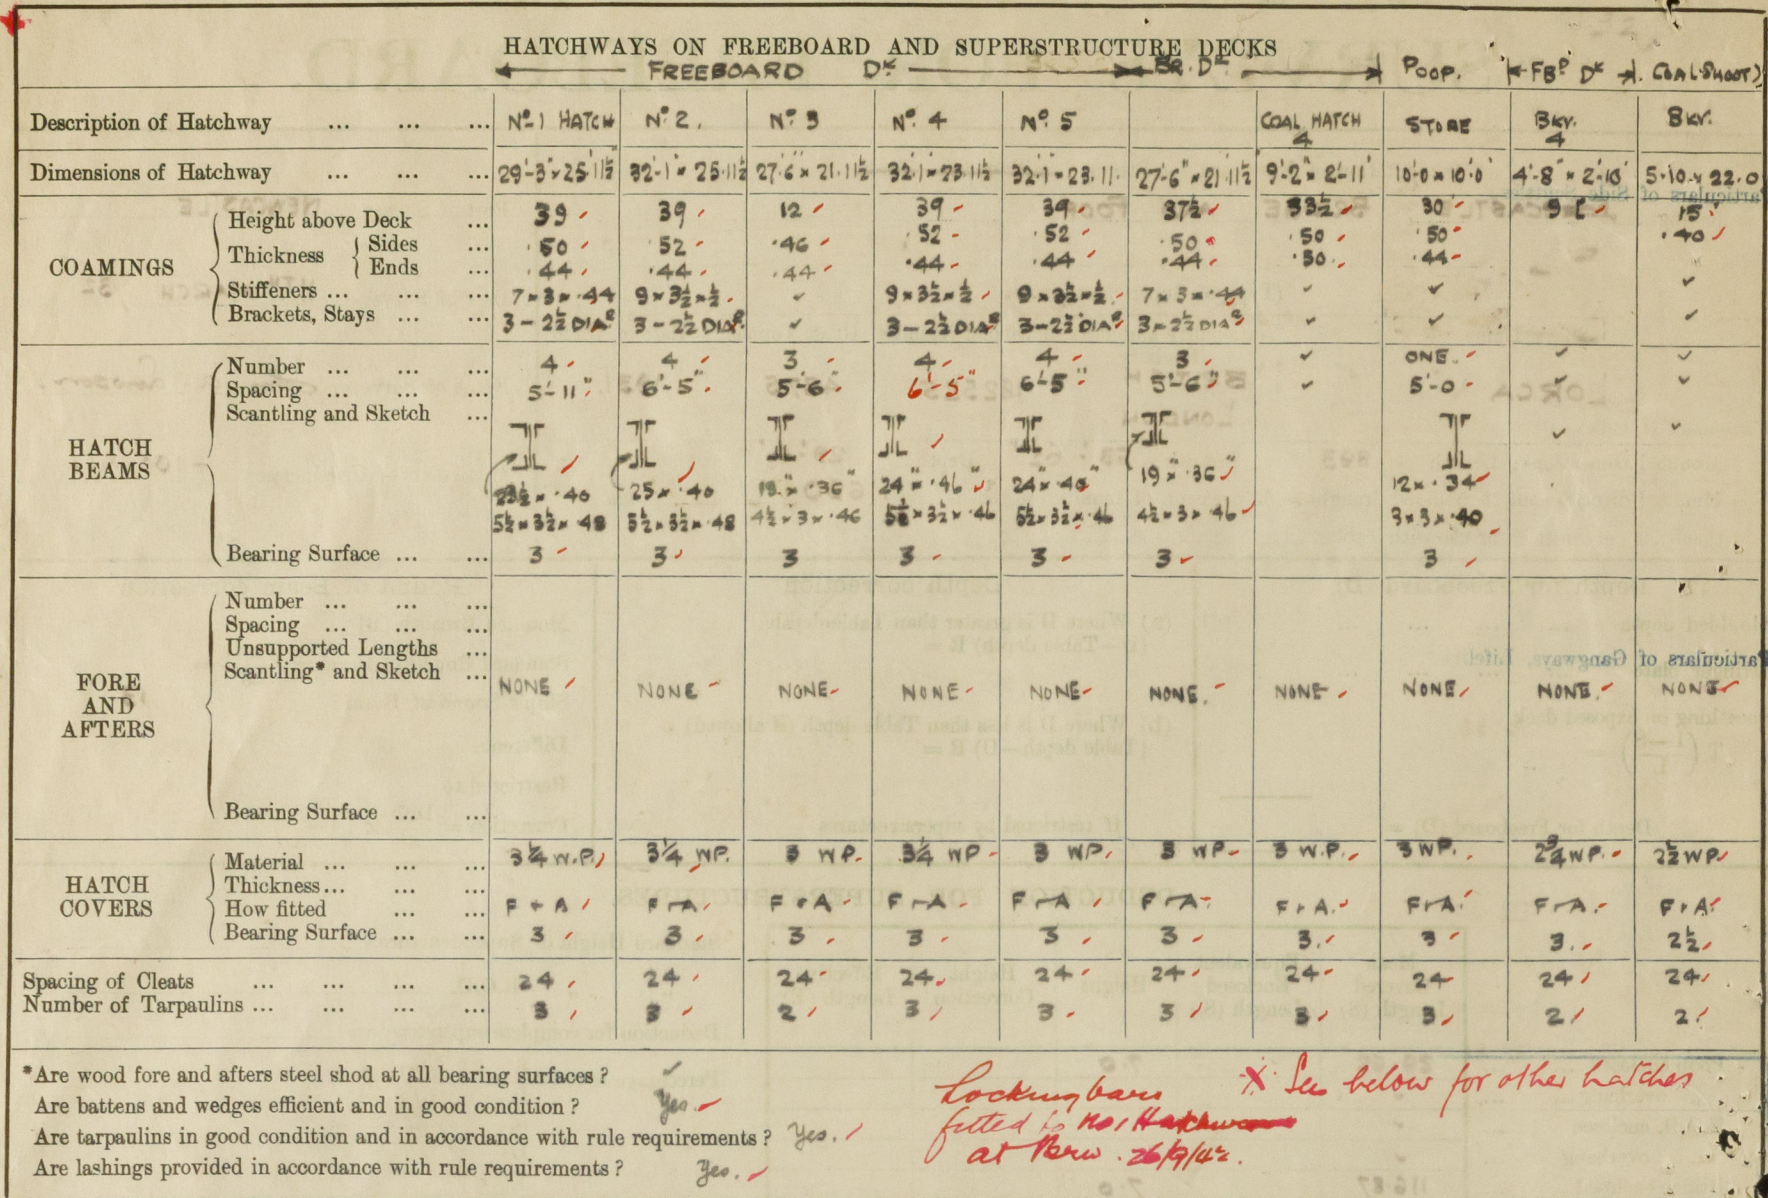 HATCHWAYS ON FREEBOARD AND SUPERSTRUCTURE DECKS
FREEBOARD Dᴷ BR. Dᴷ POOP. FBᴰ Dᴷ COAL SHOOT)
Description of Hatchway ... ... ... Nº 1 HATCH Nº 2. Nº 3 Nº 4 Nº 5 COAL HATCH 4 STORE BKR. 4 BKR.
Dimensions of Hatchway ... ... ... 29'-3" × 25'11½" 32'-1" × 25.11½ 27'6" × 21.11½ 32'.1" × 23.11½ 32'.1" × 23.11. 27'-6" × 21'.11½" 9'-2" × 2'-11" 10'-0 × 10'.0" 4'-8" × 2'-10" 5.10 × 22.0
COAMINGS
Height above Deck ... 39 39 12 39 39 37½ 33½ 30 9 [ 15
Thickness { Sides ... .50 .52 .46 .52 .52 .50 .50 .50 .40
Ends ... .44 .44 .44 .44 .44 .44 .50 .44
Stiffeners ... ... ... 7 × 3 × .44 9 × 3½ × ½ ✓ 9 × 3½ × ½ 9 × 3½ × ½ 7 × 3 × .44 ✓ ✓ ✓
Brackets, Stays ... ... 3 – 2½ DIAᴿ 3 – 2½ DIAᴿ ✓ 3 – 2½ DIAᴿ 3 – 2½ DIAᴿ 3 – 2½ DIAᴿ ✓ ✓ ✓
HATCH BEAMS
Number ... ... ... 4 4 3 4 4 3 ✓ ONE. ✓ ✓
Spacing ... ... ... 5'-11" 6'-5" 5'-6" 6'-5" 6'-5" 5'-6" ✓ 5'-0 ✓ ✓
Scantling and Sketch ... ✓ ✓
23½ × .40 25 × .40 19" × .36" 24" × .46" 24" × .40" 19" × .36" 12 × .34
5½ × 3½ × .48 5½ × 3½ × .48 4½ × 3 × .46 5½ × 3½ × .46 5½ × 3½ × .46 4½ × 3 × .46 3 × 3 × .40
Bearing Surface ... ... 3 3 3 3 3 3 3
FORE AND AFTERS
Number ... ... ...
Spacing ... ... ...
Unsupported Lengths ...
Scantling* and Sketch ...
NONE NONE NONE NONE NONE NONE. NONE NONE NONE. NONE
Bearing Surface ... ...
HATCH COVERS
Material ... ... ... 3¼ W.P. 3¼ WP. 3 WP. 3¼ WP 3 WP. 3 WP 3 W.P. 3 WP. 2¾ WP. 2½ WP
Thickness ... ... ...
How fitted ... ... F + A F + A F + A F + A F + A F + A F + A. F + A. F + A. F + A.
Bearing Surface ... ... 3 3 3 3 3 3 3. 3 3. 2½
Spacing of Cleats ... ... ... ... 24 24 24 24 24 24 24 24 24 24
Number of Tarpaulins ... ... ... ... 3 3 2 3 3 3 3 3 2 2
*Are wood fore and afters steel shod at all bearing surfaces ? ✓
Are battens and wedges efficient and in good condition ? Yes.
Are tarpaulins in good condition and in accordance with rule requirements ? Yes.
Are lashings provided in accordance with rule requirements ? Yes.
Locking bars
fitted to No 1 Hatchway
at Barw. 26/9/42.
X See below for other hatches